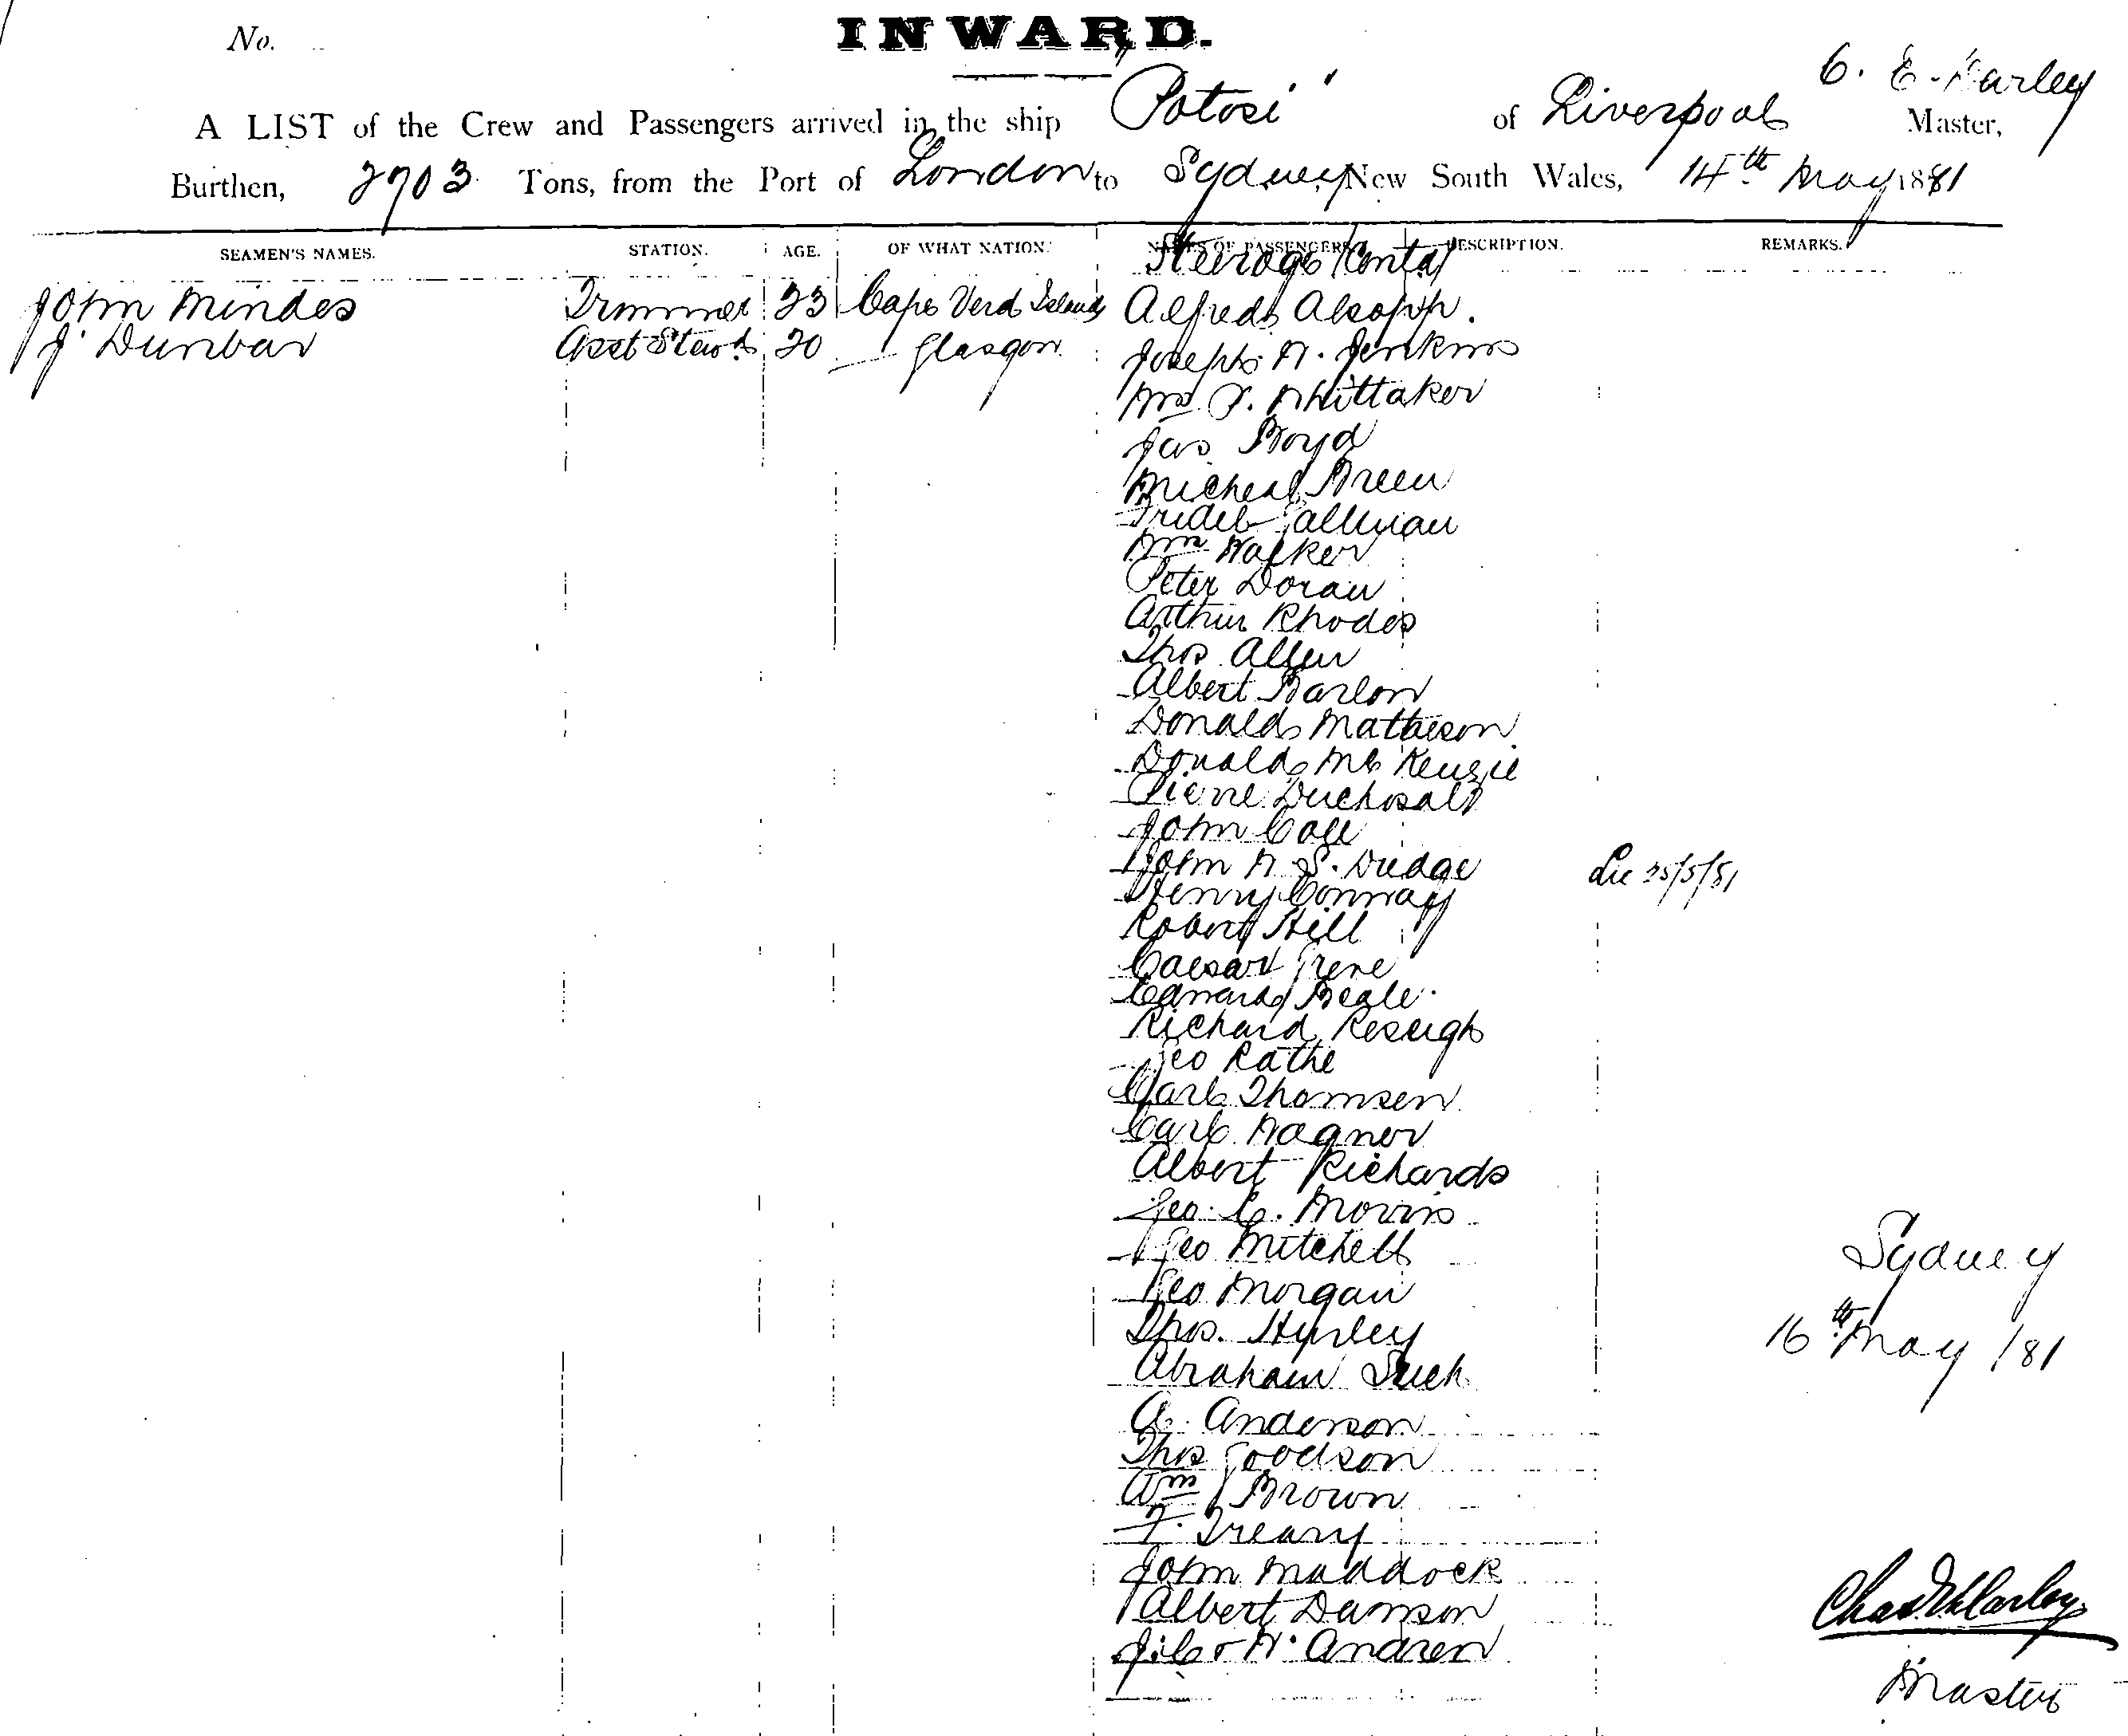 No.
INWARD.
C. E. Harley
A LIST of the Crew and Passengers arrived in the ship "Potosi" of Liverpool Master,
Burthen, 2703 Tons, from the Port of London to Sydney, New South Wales, 14th May 1881
SEAMEN'S NAMES. STATION. AGE. OF WHAT NATION. NAMES OF PASSENGERS. DESCRIPTION. REMARKS.
Steerage (Contd)
John Mindes Trimmer 23 Cape Verd Islands Alfred Alsopp.
J. Dunbar Asst Stewd 20 Glasgow Joseph W. Jenkins
Whittaker
Jas Boyd
Micheal Breen
Wm Walker
Peter Doran
Arthur Rhodes
Thos Allen
Albert Barlow
Donald Matheson
Donald Mc Kenzie
Pierre Duchosal
John Call
John W. S. Dudge Lic 25/5/81
Henry Conway
Robert Hill
Caesar
Edward Beale.
Richard Reseigh
Geo Rathe
Carl Thomsen
Carl Wagner
Albert Richards
Geo. C. Morris
Geo Mitchell
Sydney
Geo Morgan
Thos. Hurley 16th May /81
Abraham Such
A. Anderson
Thos Goodson
Wm Brown
F. Treary
John Maddock
Albert Dawson Chas E Harley
W. Andrew
Master